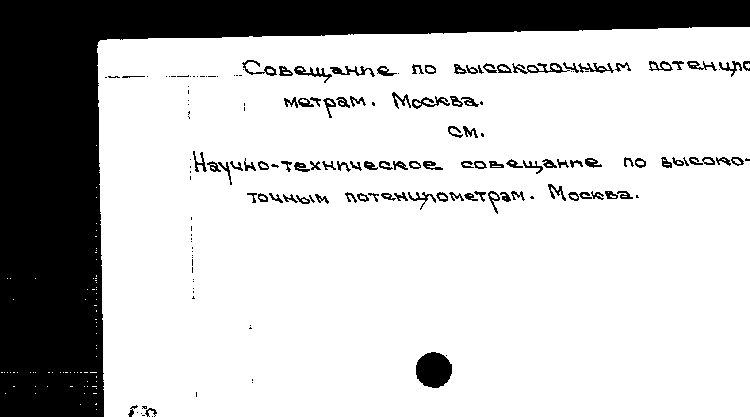 Совещание по высокоточным потенцио
метрам. Москва.
см.
Научно-техническое совещание по высоко-
точным потенциометрам. Москва.